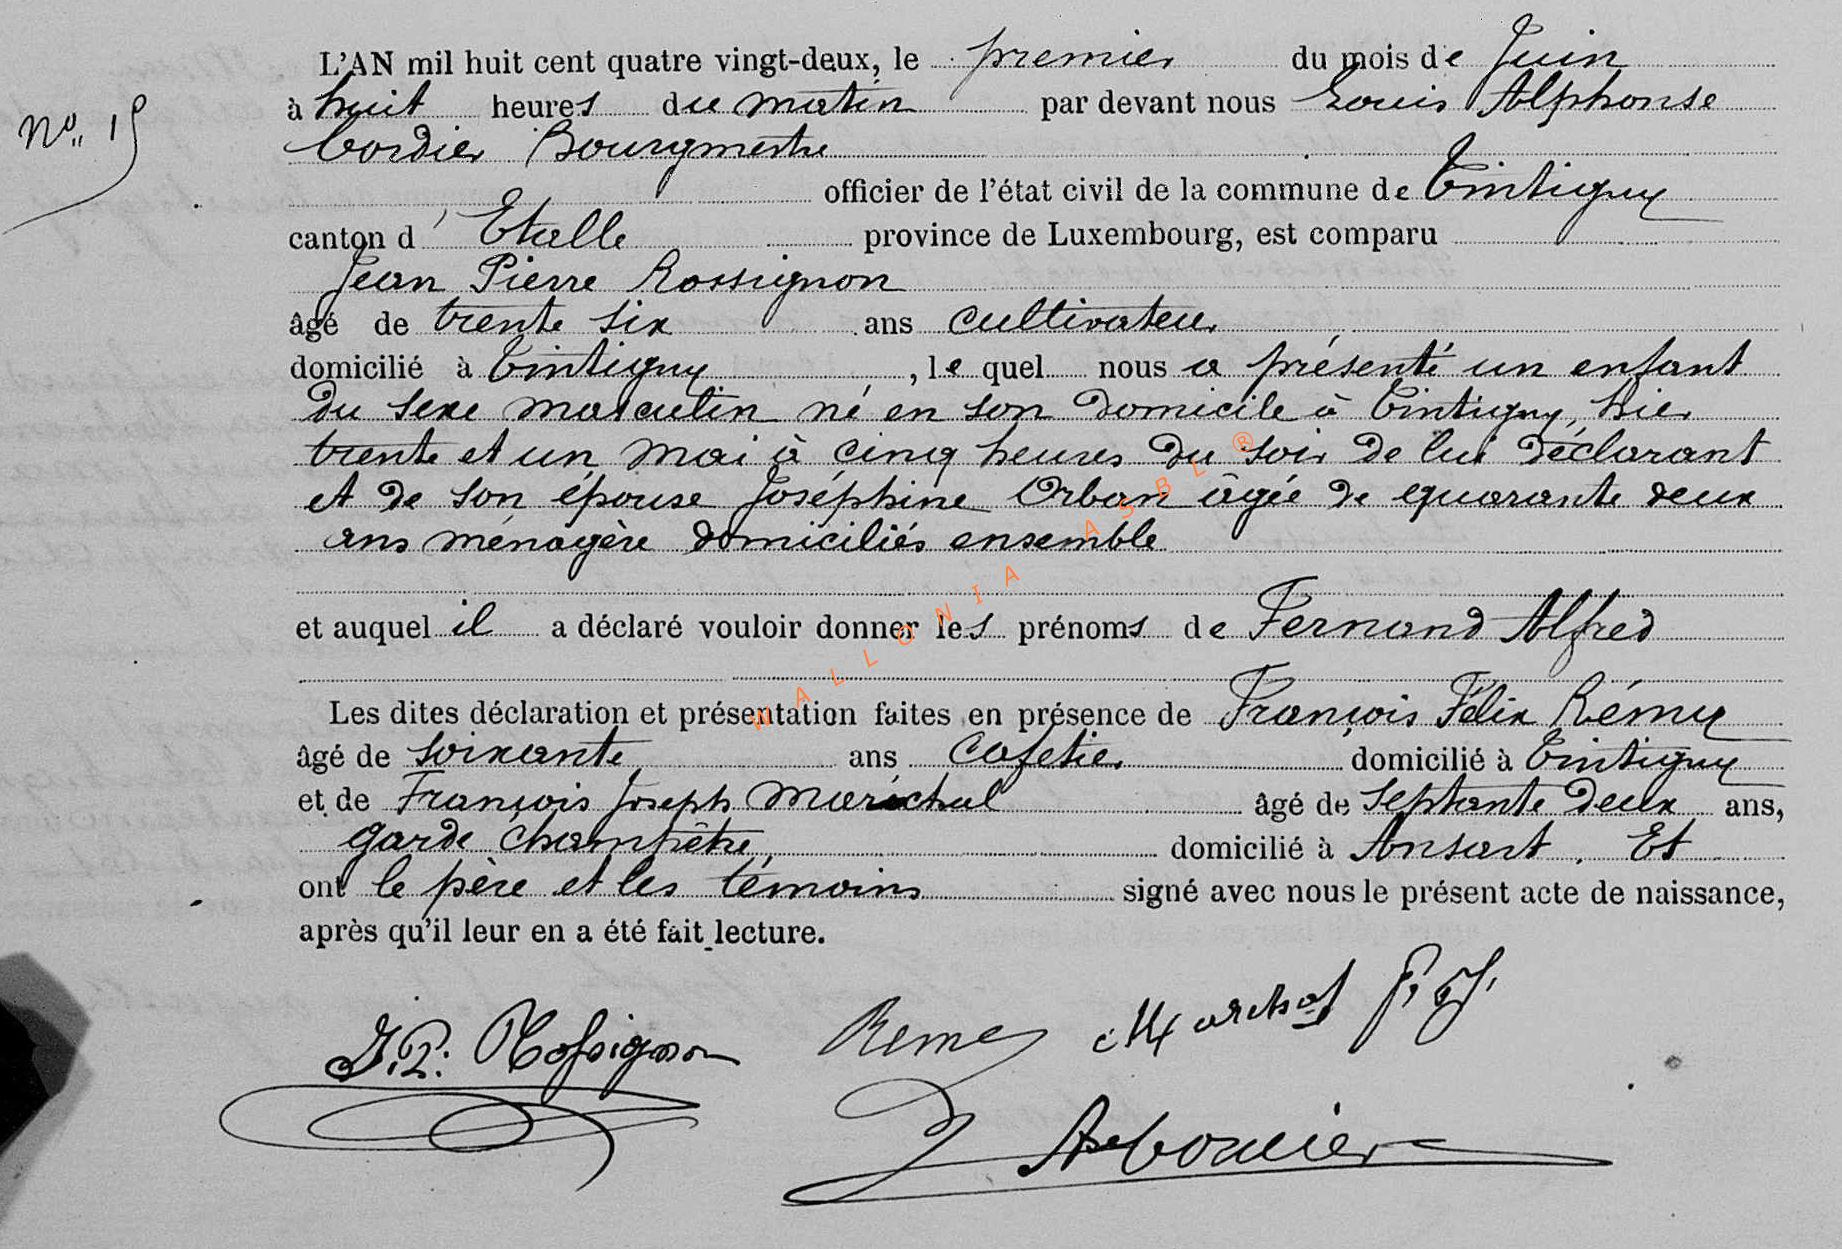 L'AN mil huit cent quatre vingt-deux, le premier du mois de Juin
No. 15
à huit heures du matin par devant nous Louis Alphonse
Cordier Bourgmestre
officier de l'état civil de la commune de Tintigny
canton d' Etalle province de Luxembourg, est comparu
Jean Pierre Rossignon
âgé de trente six ans cultivateur
domicilié à Tintigny, le quel nous a présenté un enfant
du sexe masculin né en son domicile à Tintigny, hier
trente et un Mai à cinq heures du soir de lui déclarant
et de son épouse Joséphine Orban âgée de quarante deux
ans ménagère domiciliés ensemble
WALLONIA ASBL ®
et auquel il a déclaré vouloir donner les prénoms de Fernand Alfred
Les dites déclaration et présentation faites en présence de François Félix Rémy
âgé de soixante ans Cafetier domicilié à Tintigny
et de François Joseph Maréchal âgé de Septante deux ans,
garde champêtre, domicilié à Ansart. Et
ont le père et les témoins signé avec nous le présent acte de naissance,
après qu'il leur en a été fait lecture.
J. P. Rossignon Remy Marchal F. J.